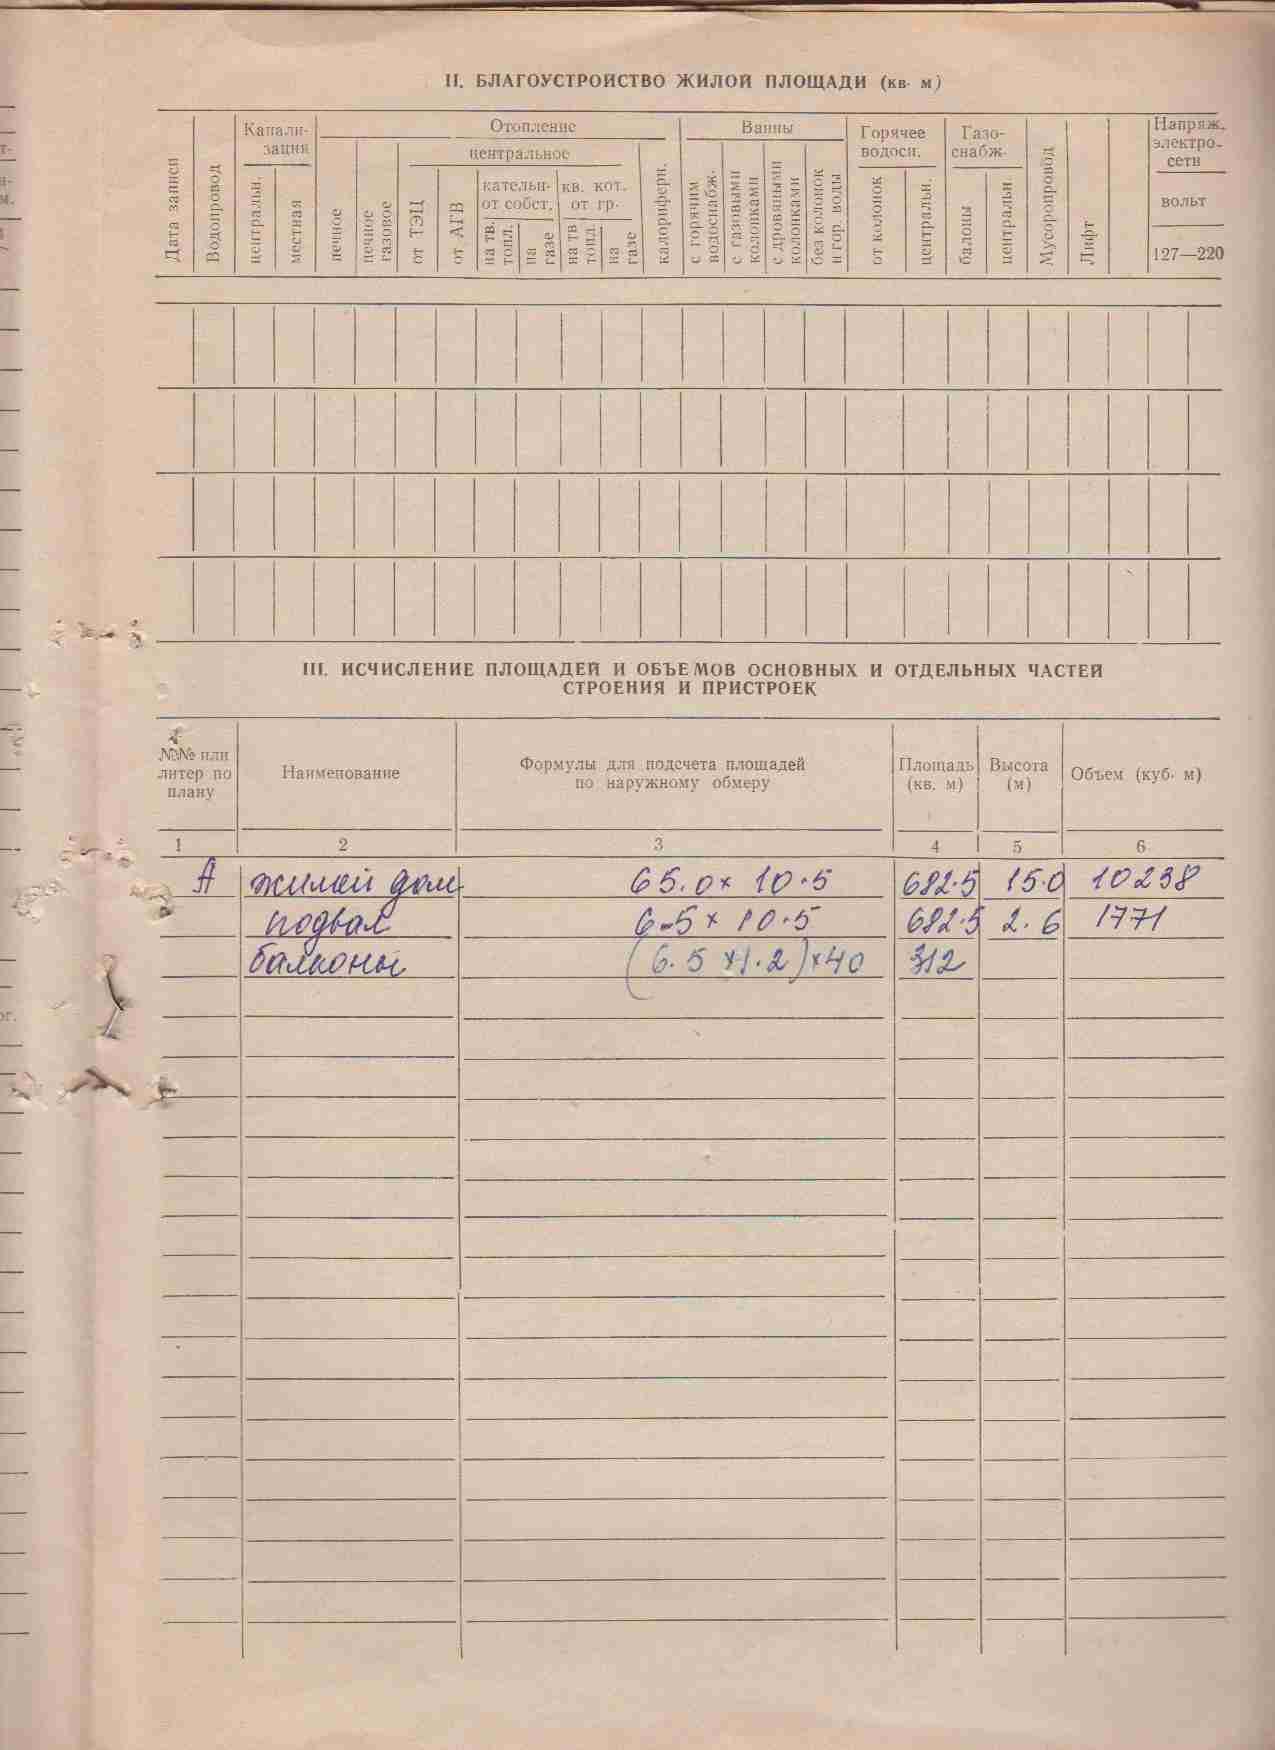 II. БЛАГОУСТРОЙСТВО ЖИЛОЙ ПЛОЩАДИ (кв. м)
Дата записи
Водопровод
Канали-
зация
центральн.
местная
Отопление
печное
печное
газовое
центральное
от ТЭЦ
от АГВ
кательн-
от собст.
на тв.
топл.
на
газе
кв. кот.
от гр.
на тв
топл.
на
газе
калориферн.
Ванны
с горячим
водоснабж.
с газовыми
колонками
с дровяными
колонками
без колонок
и гор. воды
Горячее
водосн.
от колонок
центральн.
Газо-
снабж.
балоны
центральн.
Мусоропровод
Лифт
Напряж.
электро-
сети
вольт
127—220
III. ИСЧИСЛЕНИЕ ПЛОЩАДЕЙ И ОБЪЕМОВ ОСНОВНЫХ И ОТДЕЛЬНЫХ ЧАСТЕЙ
СТРОЕНИЯ И ПРИСТРОЕК
№№ или
литер по
плану
Наименование
Формулы для подсчета площадей
по наружному обмеру
Площадь
(кв. м)
Высота
(м)
Объем (куб. м)
1 2 3 4 5 6
А жилой дом 65.0 × 10.5 682.5 15.0 10238
подвал 6.5 × 10.5 682.5 2.6 1771
балконы (6.5 × 1.2) × 40 312